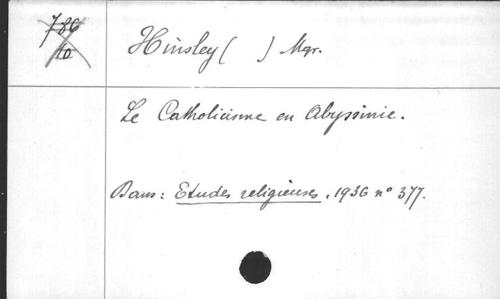 786
10
Hinsley ( ) Mgr.
Le Catholicisme en Abyssinie.
Dans: Etudes religieuses, 1936 n° 377.